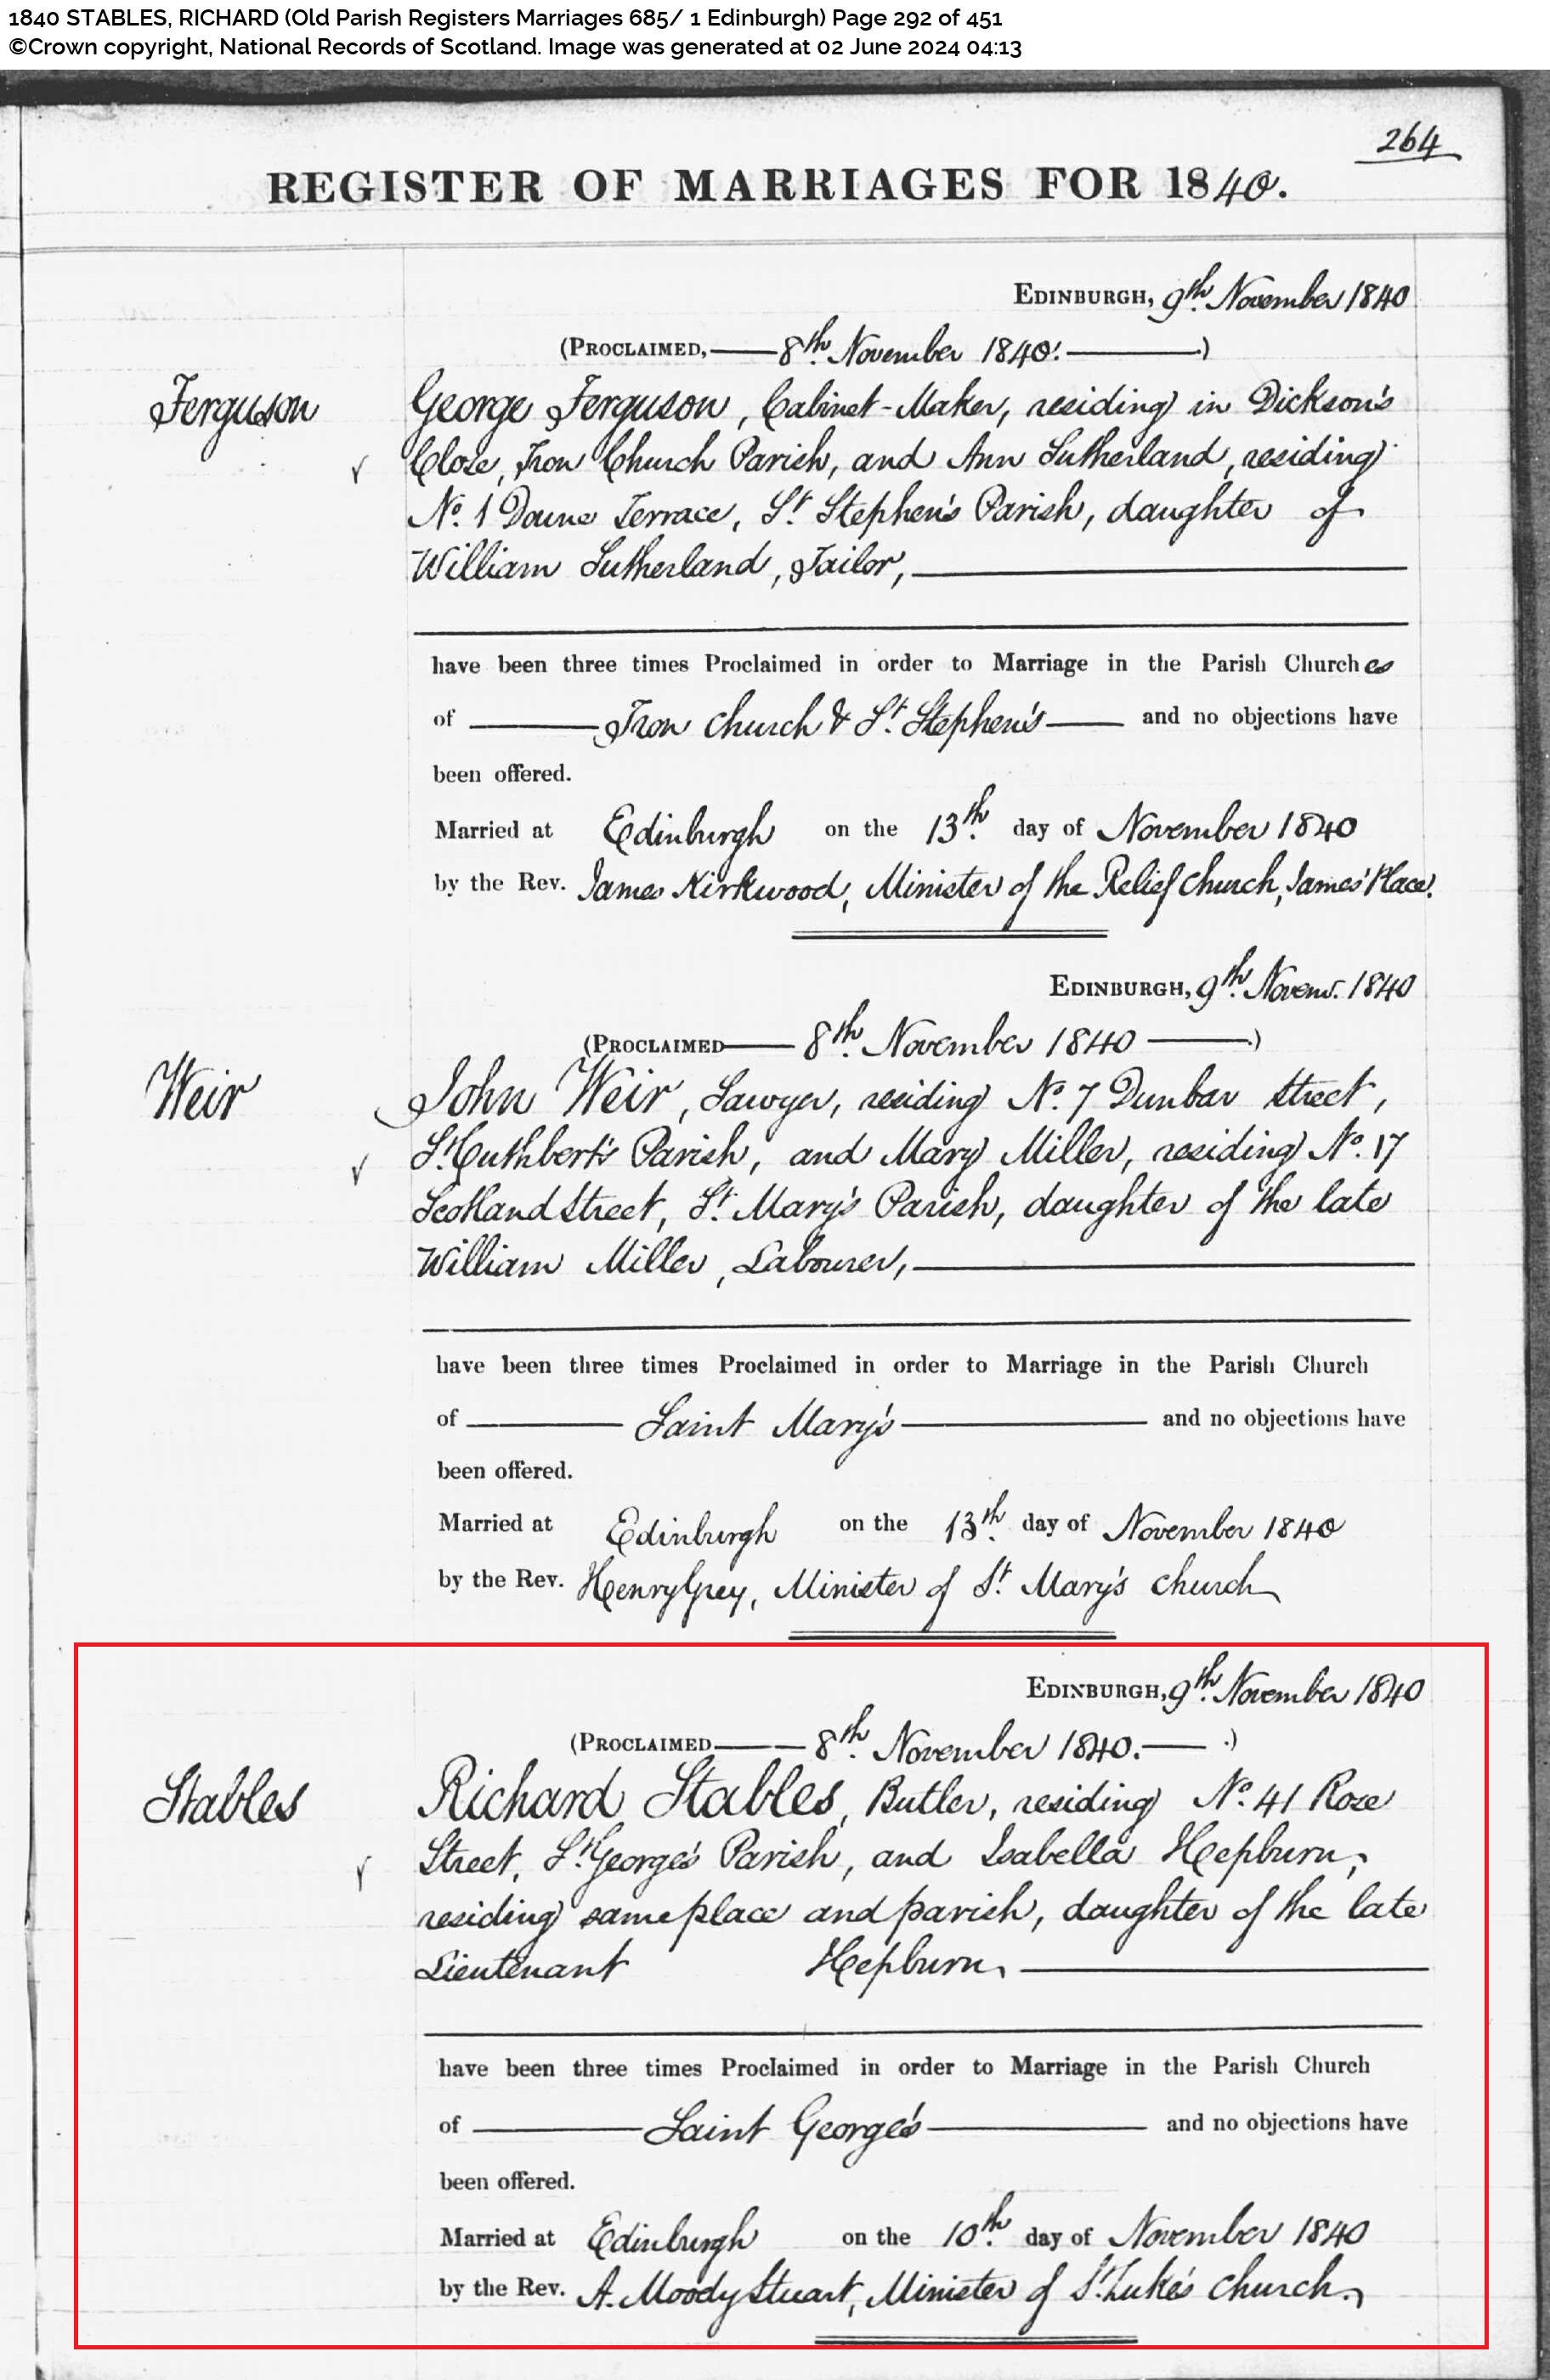 1840 STABLES, RICHARD (Old Parish Registers Marriages 685/ 1 Edinburgh) Page 292 of 451
©Crown copyright, National Records of Scotland. Image was generated at 02 June 2024 04:13
264
REGISTER OF MARRIAGES FOR 1840.
EDINBURGH, 9th. November 1840
(PROCLAIMED, 8th. November 1840. )
Ferguson
George Ferguson, Cabinet-Maker, residing in Dickson's
Close, Tron Church Parish, and Ann Sutherland, residing
No. 1 Doune Terrace, St. Stephen's Parish, daughter of
William Sutherland, Tailor,
have been three times Proclaimed in order to Marriage in the Parish Churches
of Tron Church & St. Stephen's and no objections have
been offered.
Married at Edinburgh on the 13th. day of November 1840
by the Rev. James Kirkwood, Minister of the Relief Church, James' Place.
EDINBURGH, 9th. Novem. 1840
(PROCLAIMED 8th. November 1840 )
Weir
John Weir, Sawyer, residing No. 7 Dunbar Street,
St. Cuthbert's Parish, and Mary Miller, residing No. 17
Scotland Street, St. Mary's Parish, daughter of the late
William Miller, Labourer,
have been three times Proclaimed in order to Marriage in the Parish Church
of Saint Mary's and no objections have
been offered.
Married at Edinburgh on the 13th. day of November 1840
by the Rev. Henry Grey, Minister of St. Mary's Church
EDINBURGH, 9th. November 1840
(PROCLAIMED 8th. November 1840. )
Stables
Richard Stables, Butler, residing No. 41 Rose
Street, St. George's Parish, and Isabella Hepburn,
residing same place and parish, daughter of the late
Lieutenant Hepburn,
have been three times Proclaimed in order to Marriage in the Parish Church
of Saint George's and no objections have
been offered.
Married at Edinburgh on the 10th. day of November 1840
by the Rev. A. Moody Stuart, Minister of St. Luke's Church.